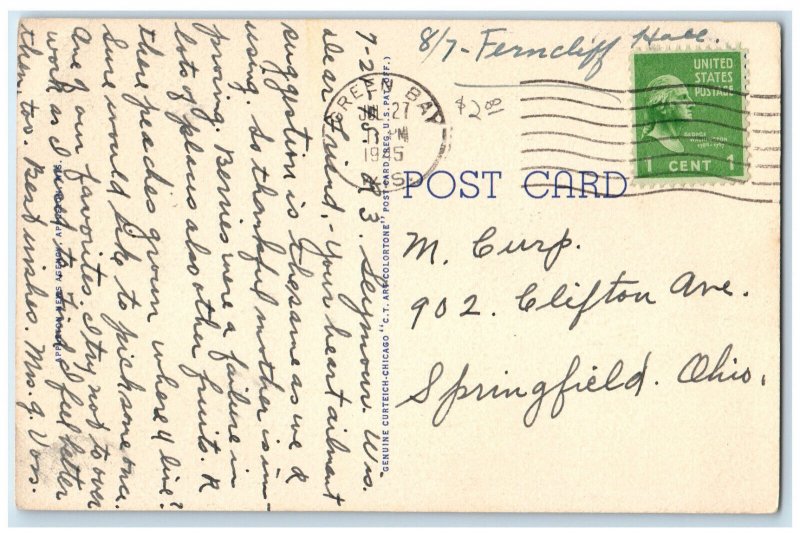 8/7- Ferncliff Hall.
$2.00
GREEN BAY
27
PM
UNITED
STATES
POSTAGE
GEORGE
WASHINGTON
1 CENT 1
POST CARD
M. Curp.
902. Clifton Ave.
Springfield. Ohio.
R 3. Seymour. Wis.
Dear Friend.- Your heart ailment
suggestion is the same as we R
using. So thankful mother is im-
proving. Berries were a failure in
lots of places also other fruits. R
there peaches grown where U live?
Sure would like to pick some once.
Are our favorites. I try not to over
work as I used to. find I feel better
then too. Best wishes. Mrs. J. Voss.
GENUINE CURTEICH-CHICAGO "C.T. ART-COLORTONE" POST CARD (REG. U.S. PAT. OFF.)